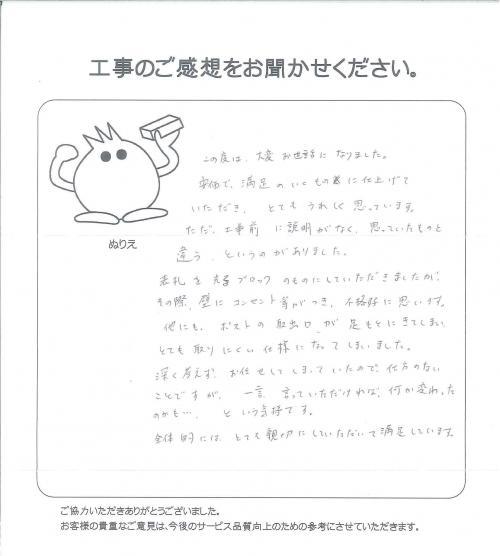 工事のご感想をお聞かせください。
この度は、大変お世話になりました。
安価で、満足のいくもの に仕上げて
いただき、とてもうれしく思っています。
ただ、工事前に説明がなく、思っていたものと
違う、というのがありました。
表札を ブロックのものにしていただきましたが、
その際、壁にコンセント等がつき、不格好に思います。
他にも、ポストの取出口が足もとにきてしまい
とても取りにくい仕様になってしまいました。
深く考えず、お任せしてしまっていたので、仕方のない
ことですが、一言、言っていただければ、何か変わった
のかも…、という気持です。
全体的には、とても親切にしていただいて満足しています。
ぬりえ
ご協力いただきありがとうございました。
お客様の貴重なご意見は、今後のサービス品質向上のための参考にさせていただきます。